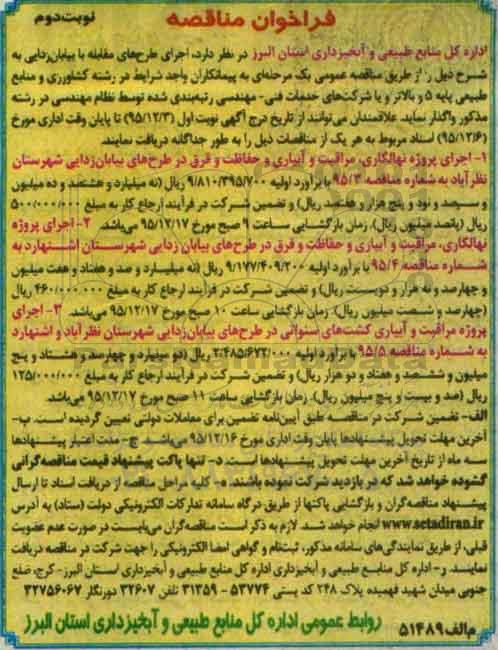 فراخوان مناقصه
نوبت دوم
اداره کل منابع طبیعی و آبخیزداری استان البرز در نظر دارد، اجرای طرح‌های مقابله با بیابان‌زدایی به
شرح ذیل را از طریق مناقصه عمومی یک مرحله‌ای به پیمانکاران واجد شرایط در رشته کشاورزی و منابع
طبیعی پایه ۵ و بالاتر و یا شرکت‌های خدمات فنی- مهندسی رتبه‌بندی شده توسط نظام مهندسی در رشته
مذکور واگذار نماید. علاقمندان می‌توانند از تاریخ درج آگهی نوبت اول (۹۵/۱۲/۳) تا پایان وقت اداری مورخ
(۹۵/۱۲/۶) اسناد مربوط به هر یک از مناقصات ذیل را به طور جداگانه دریافت نمایند.
۱- اجرای پروژه نهالکاری، مراقبت و آبیاری و حفاظت و قرق در طرح‌های بیابان‌زدایی شهرستان
نظرآباد به شماره مناقصه ۹۵/۳ با برآورد اولیه ۹/۸۱۰/۳۹۵/۷۰۰ ریال (نه میلیارد و هشتصد و ده میلیون
و سیصد و نود و پنج هزار و هفتصد ریال) و تضمین شرکت در فرآیند ارجاع کار به مبلغ ۵۰۰/۰۰۰/۰۰۰
ریال (پانصد میلیون ریال). زمان بازگشایی ساعت ۹ صبح مورخ ۹۵/۱۲/۱۷ می‌باشد. ۲- اجرای پروژه
نهالکاری، مراقبت و آبیاری و حفاظت و قرق در طرح‌های بیابان زدایی شهرستان اشتهارد به
شماره مناقصه ۹۵/۴ با برآورد اولیه ۹/۱۷۷/۴۰۹/۲۰۰ ریال (نه میلیارد و صد و هفتاد و هفت میلیون
و چهارصد و نه هزار و دویست ریال) و تضمین شرکت در فرآیند ارجاع کار به مبلغ ۴۶۰/۰۰۰/۰۰۰ ریال
(چهارصد و شصت میلیون ریال). زمان بازگشایی ساعت ۱۰ صبح مورخ ۹۵/۱۲/۱۷ می‌باشد. ۳- اجرای
پروژه مراقبت و آبیاری کشت‌های سنواتی در طرح‌های بیابان‌زدایی شهرستان نظرآباد و اشتهارد
به شماره مناقصه ۹۵/۵ با برآورد اولیه ۲/۴۸۵/۶۷۲/۰۰۰ ریال (دو میلیارد و چهارصد و هشتاد و پنج
میلیون و ششصد و هفتاد و دو هزار ریال) و تضمین شرکت در فرآیند ارجاع کار به مبلغ ۱۲۵/۰۰۰/۰۰۰
ریال (صد و بیست و پنج میلیون ریال). زمان بازگشایی ساعت ۱۱ صبح مورخ ۹۵/۱۲/۱۷ می‌باشد.
الف- تضمین شرکت در مناقصه طبق آیین‌نامه تضمین برای معاملات دولتی تعیین گردیده است. ب-
آخرین مهلت تحویل پیشنهادها پایان وقت اداری مورخ ۹۵/۱۲/۱۶ می‌باشد. ج- مدت اعتبار پیشنهادها
سه ماه از تاریخ آخرین مهلت تحویل پیشنهادها است. د- تنها پاکت پیشنهاد قیمت مناقصه‌گرانی
گشوده خواهد شد که در بازدید شرکت نموده باشند. ه- کلیه مراحل مناقصه از دریافت اسناد تا ارسال
پیشنهاد مناقصه‌گران و بازگشایی پاکتها از طریق درگاه سامانه تدارکات الکترونیکی دولت (ستاد) به آدرس
www.setadiran.ir انجام خواهد شد. لازم به ذکر است مناقصه‌گران می‌بایست در صورت عدم عضویت
قبلی، از طریق نمایندگی‌های سامانه مذکور، ثبت‌نام و گواهی امضا الکترونیکی را جهت شرکت در مناقصه دریافت
نمایند. ر- اداره کل منابع طبیعی و آبخیزداری اداره کل منابع طبیعی و آبخیزداری استان البرز- کرج، ضلع
جنوبی میدان شهید فهمیده پلاک ۲۴۸ کد پستی ۵۳۷۷۴ - ۳۱۳۵۹ تلفن ۳۲۶۰۷ دورنگار ۳۲۷۵۶۰۶۷
روابط عمومی اداره کل منابع طبیعی و آبخیزداری استان البرز
م‌الف۵۱۴۸۹